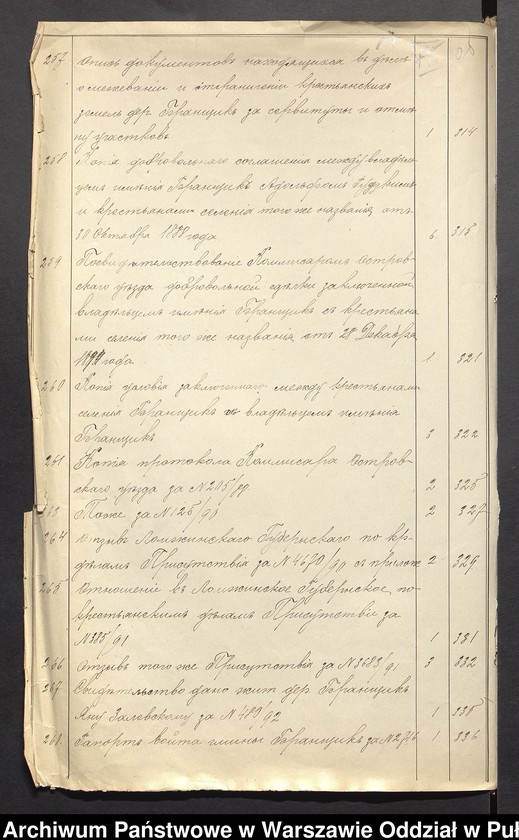 257 Опись документовъ находящихся въ дѣлѣ
о межеваніи и отграниченіи крестьянскихъ
земель дер. Бранщикъ за сервитуты и отмѣ-
ну участковъ 1 314
258 Копія добровольнаго соглашенія между владѣль-
цемъ имѣнія Бранщикъ Адольфомъ
и крестьянами селенія того же названія, отъ
30 Октября 1889 года 6 315
259 Посвидѣтельствованіе Коммисаромъ Остров-
скаго уѣзда добровольной сдѣлки заключенной
владѣльцемъ имѣнія Бранщикъ съ крестьяна-
ми селенія того же названія, отъ 28 Декабря
года 1 321
260 Копія условія заключеннаго между крестьянами
селенія Бранщикъ и владѣльцемъ имѣнія
Бранщикъ 3 322
261 Копія протокола Коммисара Остров-
скаго уѣзда за N 205/89 2 325
Тоже за N 125/90 2 327
264 Отзывъ Ломжинскаго Губернскаго по кр.
дѣламъ Присутствія за N 4670/90 съ прилож. 2 329
265 Отношеніе въ Ломжинское Губернское по
крестьянскимъ дѣламъ Присутствіе за
N 385/91 1 331
266 Отзывъ того же Присутствія за N 3683/91 3 332
267 Свидѣтельство дано жит. дер. Бранщикъ
Яну Залевскому за N 489/92 1 335
268 Рапортъ войта гмины Бранщикъ за N 2746 1 336
Archiwum Państwowe w Warszawie Oddział w Puł